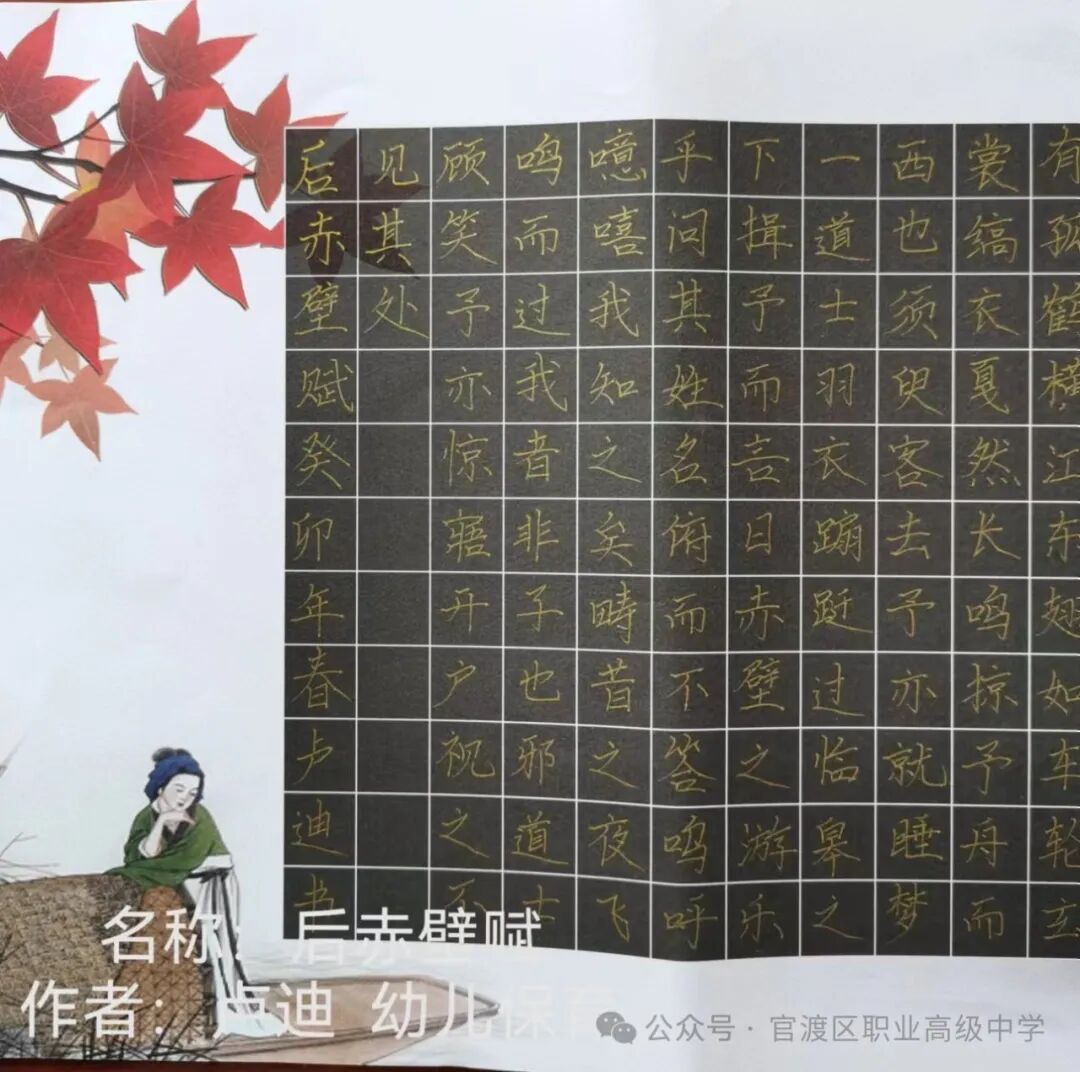 有孤鹤横江东翅如车轮玄
裳缟衣戛然长鸣掠予舟而
西也须臾客去予亦就睡梦
一道士羽衣蹁跹过临皋之
下揖予而言曰赤壁之游乐
乎问其姓名俯而不答呜呼
噫嘻我知之矣畴昔之夜飞
鸣而过我者非子也邪道士
顾笑予亦惊寤开户视之不
见其处
后赤壁赋癸卯年春卢迪书
名称：后赤壁赋
作者：卢迪 幼儿保育
公众号·官渡区职业高级中学